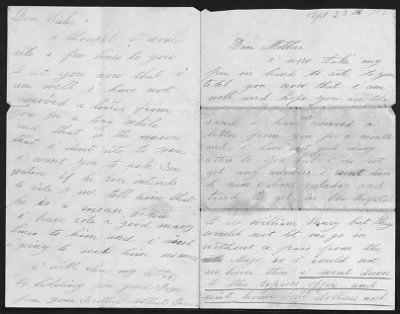 Dear Sister
i thought i would
rite a few lines to you
to let you now that i
am well i have not
received a letter from
you for a long while
and that is the reason
that i dont rite to you
i want you to ask
if he ever intends
to rite to me tell him that
he is a mean
i have rote a good many
lines to him and i aint
a going to rite him no more
i will close my letter
by bidding you good bye
from your Brother Albert
Sept 23th
Dear Mother
i now take my
pen in hand to rite to you
to let you now that i am
well and hope you are the
same i have received a
letter from you for a month
and i have rote good many
letters to you but i do not
get any answer i went down
to new orleans yesterday and
tried to get in the hospital
to see William Henry but they
would not let me go in
without a pass from the
Major so i could not
see him then i went down
to the express office and
sent home dollars and